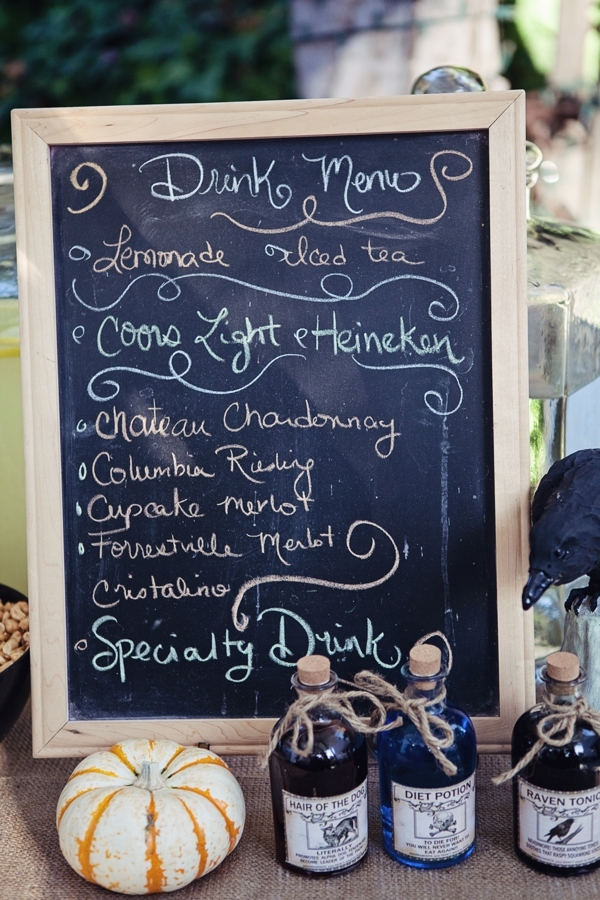 Drink Menu
Lemonade Iced tea
Coors Light Heineken
Chateau Chardonnay
Columbia Riesling
Cupcake Merlot
Forrestville Merlot
Cristalino
Specialty Drink
HAIR OF THE DOG
LITERALLY
DIET POTION
TO DIE FOR!
YOU WILL NEVER WANT TO
EAT AGAIN!
RAVEN TONIC